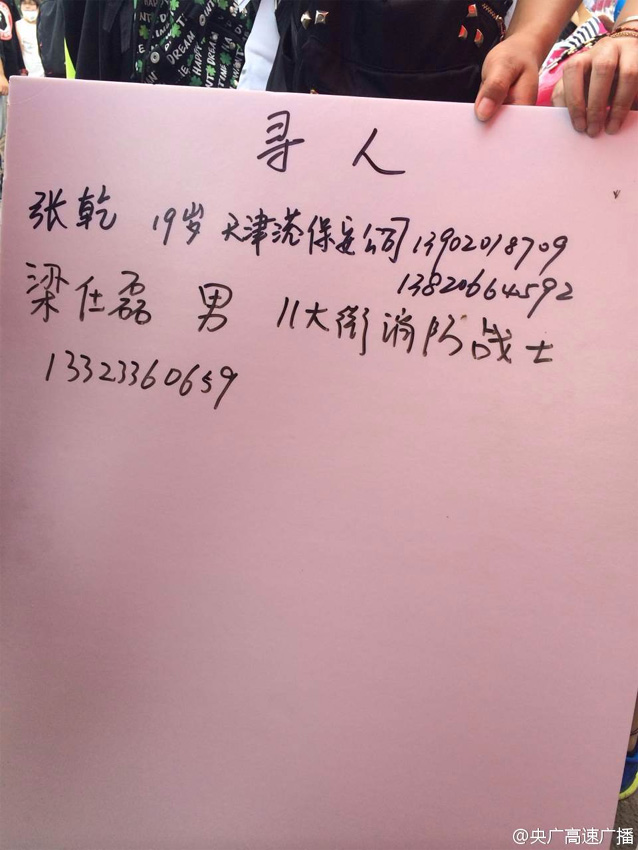 寻人
张乾 19岁 天津港保安公司 13902018709
13820664592
梁仕磊 男 八大街消防战士
13323360659
@央广高速广播